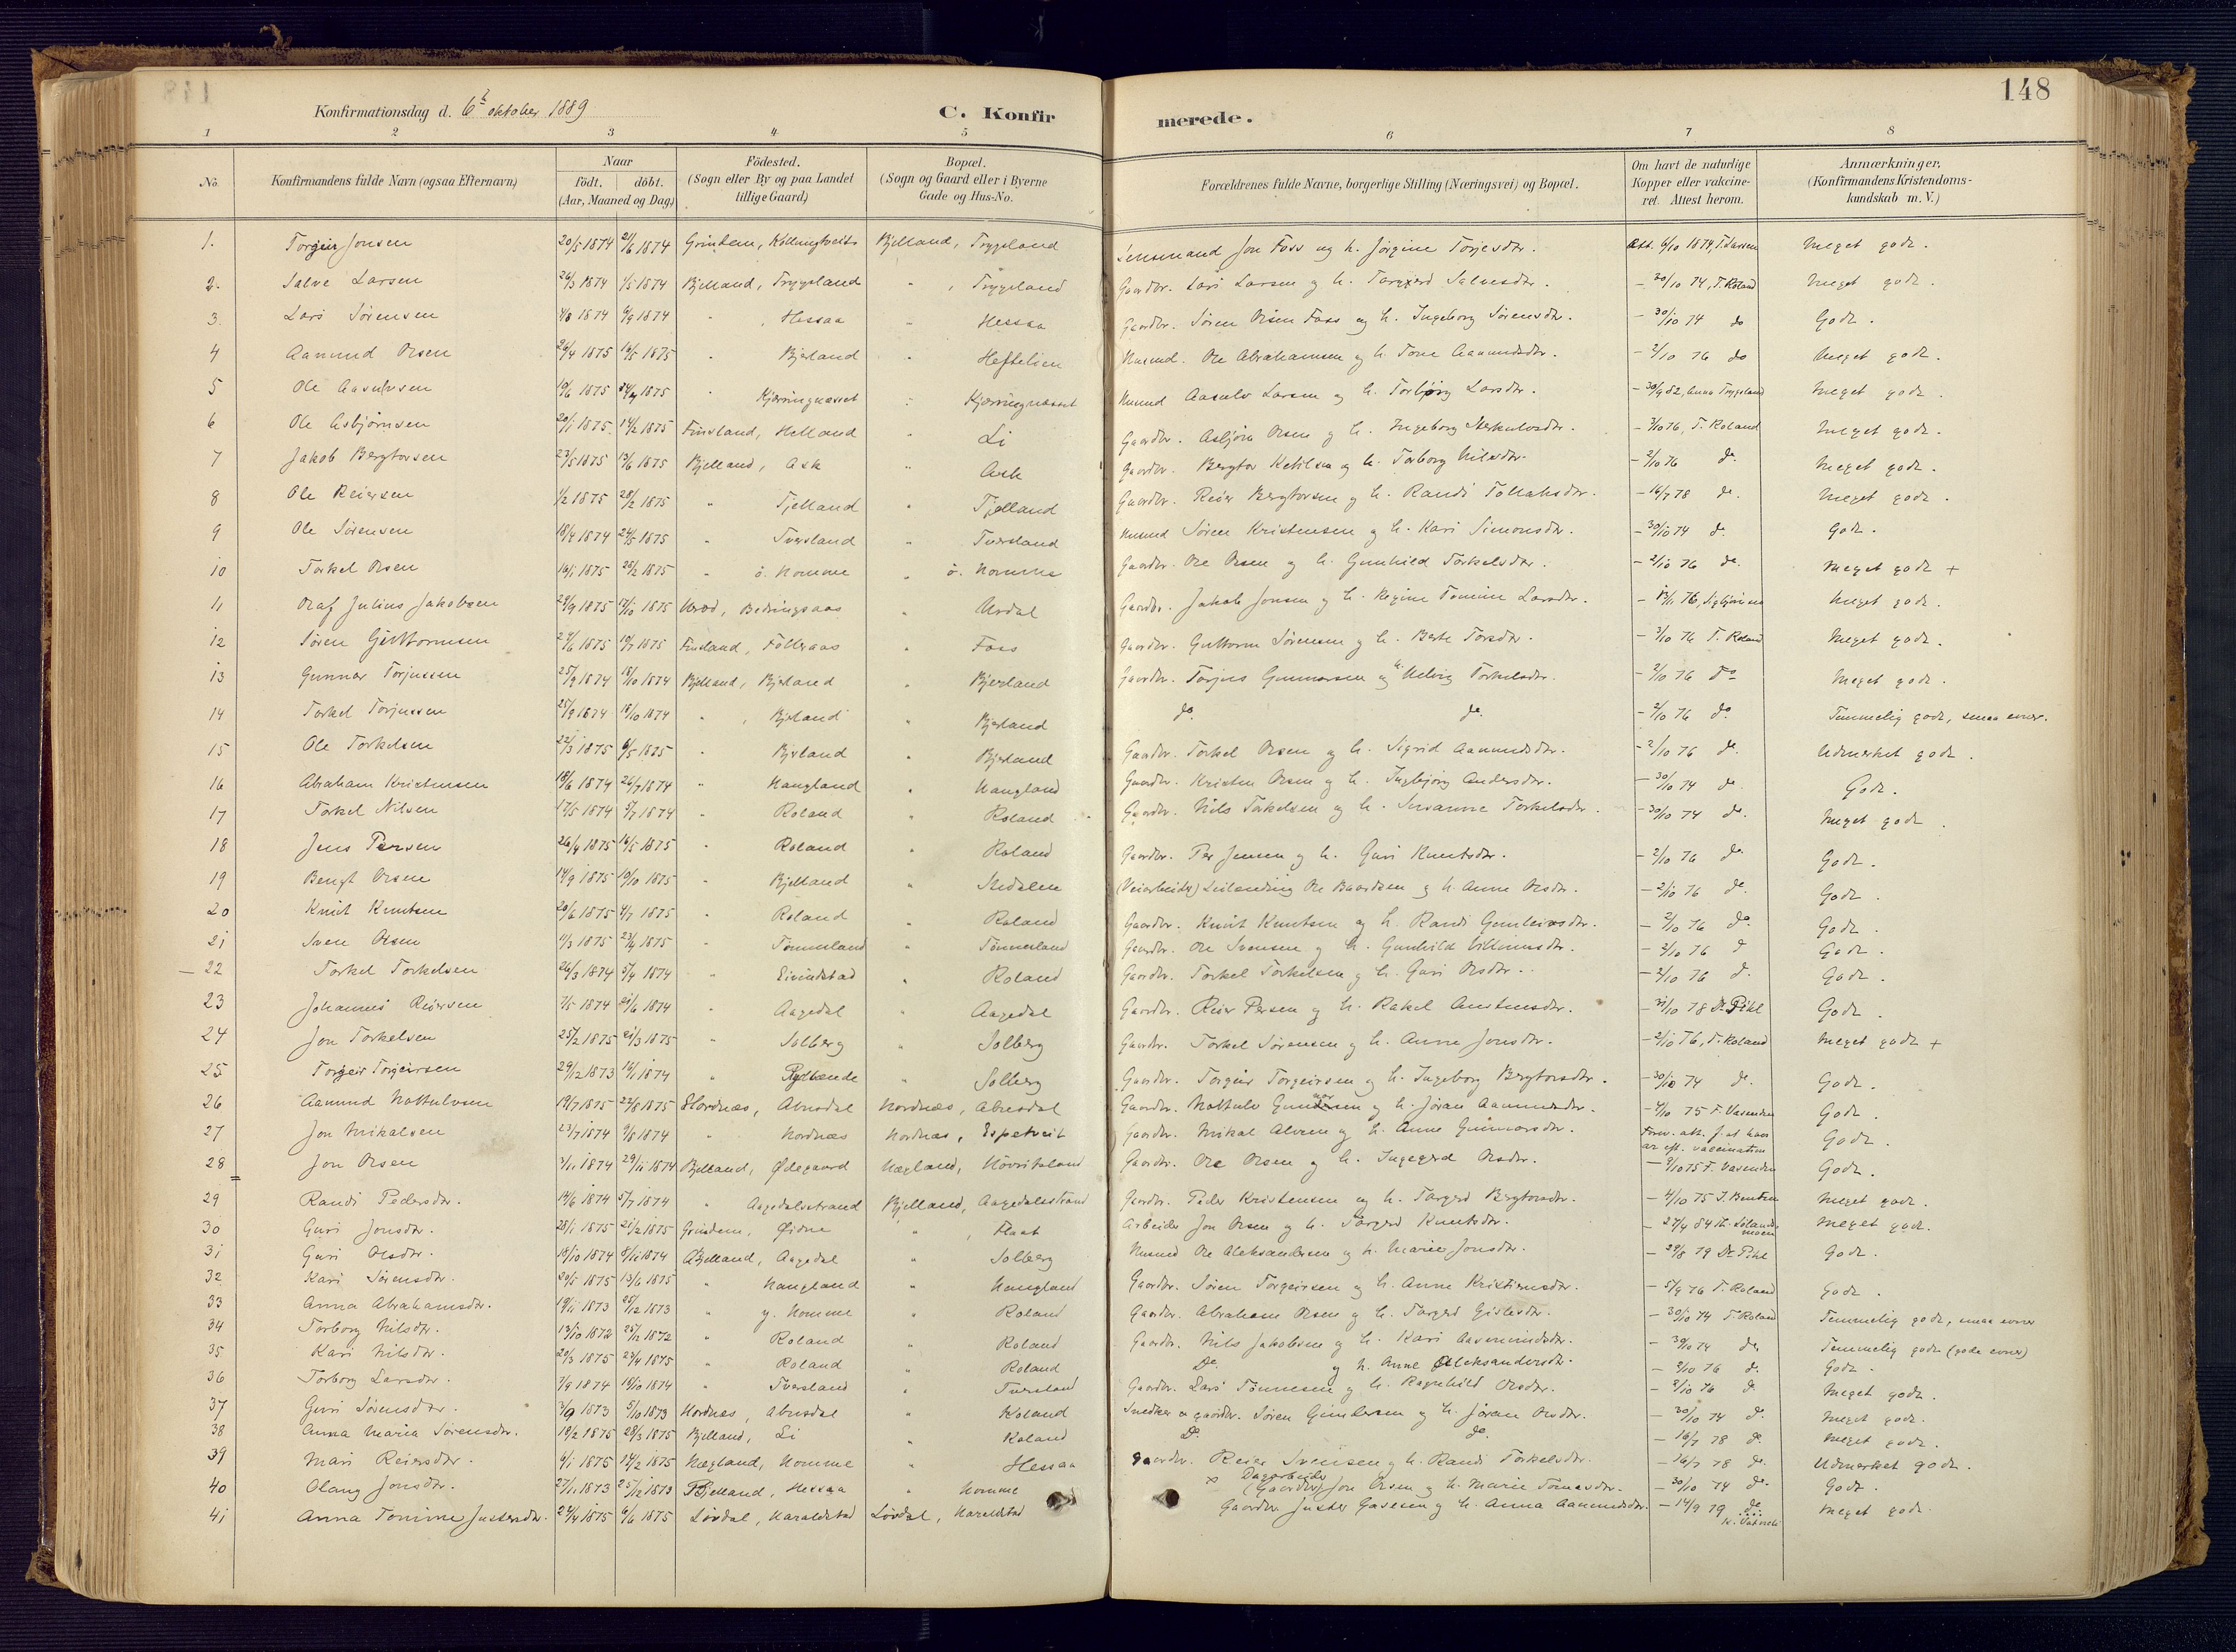 148
Konfirmationsdag d. 6t oktober 1889 C. Konfirmerede.
1 2 3 4 5 6 7 8
No. Konfirmandens fulde Navn (ogsaa Efternavn) Naar født. døbt. (Aar, Maaned og Dag) Födested. (Sogn eller By og paa Landet tillige Gaard) Bopæl. (Sogn og Gaard eller i Byerne Gade og Hus-No. Forældrenes fulde Navne, borgerlige Stilling (Næringsvei) og Bopæl. Om havt de naturlige Kopper eller vakcineret. Attest herom. Anmærkninger. (Konfirmandens Kristendomskundskab m. V.)
1. Torgeir Jonsen 20/5 1874 21/6 1874 Grindem, Bjelland, Trygsland Lensmand Jon Foss og h. Jørgine Torjesdtr. Att. 6/10 1874, T. Larsen Meget godt.
2. Salve Larsen 26/3 1874 1/5 1874 Bjelland, Trygsland " , Trygsland Gaardbr. Lars Larsen og h. Torgjerd Salvesdtr. - 30/10 74, T. Roland Meget godt.
3. Lars Sørensen 4/8 1874 6/9 1874 " , Hessaa " Hessaa Gaardbr. Søren Olsen Foss og h. Ingeborg Sørensdtr. - 30/10 74 do Godt.
4 Aanund Olsen 26/4 1875 16/5 1875 " Bjerland " Heftelien Husmd. Ole Abrahamsen og h. Tone Aanundsdtr. - 2/10 76 do Meget godt.
5 Ole Aasulvsen 10/6 1875 1875 " Kjærringnæsset " Kjærringnæsset Husmd Aasulv Larsen og h. Torbjørg Larsdtr. - 30/9 82, Anna Trygsland Meget godt.
6 Ole Asbjørnsen 20/1 1875 14/2 1875 Finsland, Helland " Li Gaardbr. Asbjørn Olsen og h. Ingeborg Sterkulvsdtr. - 3/10 76, T. Roland Meget godt.
7 Jakob Bergtorsen 23/5 1875 13/6 1875 Bjelland, Ask " Ask Gaardbr. Bergtor Ketilsen og h. Torborg Nilsdtr. - 2/10 76 do. Meget godt.
8 Ole Reiersen 1/2 1875 28/2 1875 " Tjelland " Tjelland Gaardbr. Reier Bergtorsen og h. Randi Tollaksdtr. - 16/7 78 do. Meget godt.
9 Ole Sørensen 18/4 1874 24/5 1875 " Tversland " Tversland Husmd Søren Kristensen og h. Kari Simonsdtr. - 30/10 74 do. Godt.
10 Torkel Olsen 16/1 1875 28/2 1875 " ö. Homme " ö. Homme Gaardbr. Ole Olsen og h. Gunhild Torkelsdtr. - 2/10 76 do. Meget godt +
11 Olaf Julius Jakobsen 29/9 1875 17/10 1875 Bedringsaas " Urdal Gaardbr. Jakob Jonsen og h. Regine Tomine Larsdtr. 76, Meget godt.
12 Søren Guttormsen 24/6 1875 19/7 1875 Finsland, Folleraas " Foss Gaardbr. Guttorm Sørensen og h. Berte Torsdtr. - 3/10 76 T. Roland Meget godt.
13 Gunnar Torjussen 25/9 1874 18/10 1874 Bjelland, Bjerland " Bjerland Gaardbr. Torjus Gunnarsen og h. Helvig Torkelsdtr. - 2/10 76 Do Meget godt.
14 Torkel Torjussen 25/9 1874 18/10 1874 " , Bjerland " Bjerland do. do. - 2/10 76 do Temmelig godt, smaa evner.
15 Ole Torkelsen 22/3 1875 6/5 1875 " Bjerland " Bjerland Gaardbr. Torkel Olsen og h. Sigrid Aanundsdtr. - 2/10 76 do. Udmerket godt.
16 Abraham Kristensen 18/6 1874 26/7 1874 " Haugland " Haugland Gaardbr. Kristen Olsen og h. Ingbjørg Andersdtr. - 30/10 74 do Godt.
17 Torkel Nilsen 17/5 1874 5/7 1874 " Roland " Roland Gaardbr. Nils Torkelsen og h. Susanne Torkelsdtr. - 30/10 74 do. Meget godt.
18 Jens Persen 26/4 1875 16/5 1875 " Roland " Roland Gaardbr. Per Jensen og h. Guri Knutsdtr. - 2/10 76 do Godt.
19 Bengt Olsen 14/9 1875 10/10 1875 " Bjelland " Gaardbr. (Veiarbeider) Leilænding Ole Baardsen og h. Anne Olsdtr. - 2/10 76 do. Godt.
20 Knut Knutsen 20/6 1875 4/7 1875 " Roland " Roland Gaardbr. Knut Knutsen og h. Randi Gunleiksdtr. - 2/10 76 do. Godt.
21 Sven Olsen 11/3 1875 23/4 1875 " Tønnesland " Tønnesland Gaardbr. Ole Svensen og h. Gunhild Villumsdtr. - 2/10 76 d Godt.
22 Torkel Torkelsen 26/3 1874 5/4 1874 " Eivindstad " Roland Gaardbr. Torkel Torkelsen og h. Guri Olsdtr. - 2/10 76 d. Godt.
23 Johannes Reiersen 7/5 1874 21/6 1874 " Aagedal " Aagedal Gaardbr. Reier Persen og h. Rakel Anstensdtr. - 31/10 78 Dr. Pihl Godt.
24 Jon Torkelsen 25/2 1875 21/3 1875 " Solberg " Solberg Gaardbr. Torkel Sørensen og h. Anne Jonsdtr. - 2/10 76, T. Roland Meget godt +
25 Torgeir Torgeirsen 29/12 1873 18/1 1874 " " Solberg Gaardbr. Torgeir Torgeirsen og h. Ingeborg Bergtorsdtr. - 30/10 74 do. Godt.
26 Aanund Nottulvsen 19/7 1875 22/8 1875 Hordnæs, Abusdal Hordnæs, Abusdal Gaardbr. Nottulv og h. Jøran Aanundsdtr. - 4/10 75 F. Vasenden Godt.
27 Jon Mikalsen 23/7 1874 9/8 1874 " Hordnæs Hordnæs, Espetveit Gaardbr. Mikal Alvsen og h. Anne Gunnarsdtr. vaccination Godt.
28 Jon Olsen 3/11 1874 29/11 1874 Bjelland, Ødegaard Hægland, Gaardbr. Ole Olsen og h. Ingegerd Olsdtr. - 9/10 75 F. Vasenden Godt.
29 Randi Pedersdtr. 14/6 1874 5/7 1874 " Aagedalsstrand Bjelland, Aagedalsstrand Gaardbr. Peder Kristensen og h. Torgerd Bergtorsdtr. - 4/10 75 J. Bentsen Meget godt.
30 Guri Jonsdtr. 28/1 1875 21/2 1875 Grindem, Øidne " , Flaat Arbeider Jon Olsen og h. Torgerd Knutsdtr. - 27/4 84 Meget godt.
31 Guri Olsdtr. 18/10 1874 8/11 1874 Bjelland, Aagedal " Solberg Husmd Ole Aleksandersen og h. Marie Jonsdtr. - 29/8 79 Dr. Pihl Godt.
32 Kari Sørensdtr. 20/5 1875 13/6 1875 " Haugland " Haugland Gaardbr. Søren Torgeirsen og h. Anne Kristiensdtr. - 5/9 76 T. Roland Godt.
33 Anna Abrahamsdtr. 19/11 1873 25/12 1873 " y. Homme " Roland Gaardbr. Abraham Olsen og h. Torgerd Gislesdtr. - 30/10 74 T. Roland Temmelig godt, smaa evner
34 Torborg Nilsdtr. 13/10 1872 25/12 1872 " Roland " Roland Gaardbr. Nils Jakobsen og h. Kari Aasmundsdtr. - 30/10 74 do, Temmelig godt (gode evner)
35 Kari Nilsdtr. 20/3 1875 23/4 1875 " Roland " Roland Do. og h. Anne Aleksandersdtr. - 2/10 76 d. Godt.
36 Torborg Larsdtr. 7/9 1874 18/10 1874 " Tversland " Tversland Gaardbr. Lars Tønnesen og h. Ragnhild Olsdtr. - 2/10 76 d. Meget godt.
37 Guri Sørensdtr. 3/9 1873 5/10 1873 Hordnæs, Abusdal " Roland Snedker og gaardbr. Søren Gundersen og h. Jøran Olsdtr. - 30/10 74 d. Meget godt.
38 Anna Maria Sørensdtr. 18/2 1875 28/3 1875 Bjelland, Li " Roland Do. do. - 16/7 78 d. Meget godt.
39 Mari Reiersdtr. 6/1 1875 14/2 1875 Hægland, Homme " Hessaa Gaardbr. Reier Svensen og h. Randi Torkelsdtr. - 16/7 78 do. Udmerket godt.
40 Olaug Jonsdtr. 27/11 1873 25/12 1873 Bjelland, Hessaa " Homme × Dagarbeider (Gaardbr.) Jon Olsen og h. Marie Tomasdtr. - 30/10 74 do. Godt.
41 Anna Tomine Justersdtr. 22/4 1875 6/6 1875 Løvdal, Haraldstad Løvdal, Haraldstad Gaardbr. Juster Gavesen og h. Anna Aanundsdtr. - 14/9 79 Meget godt